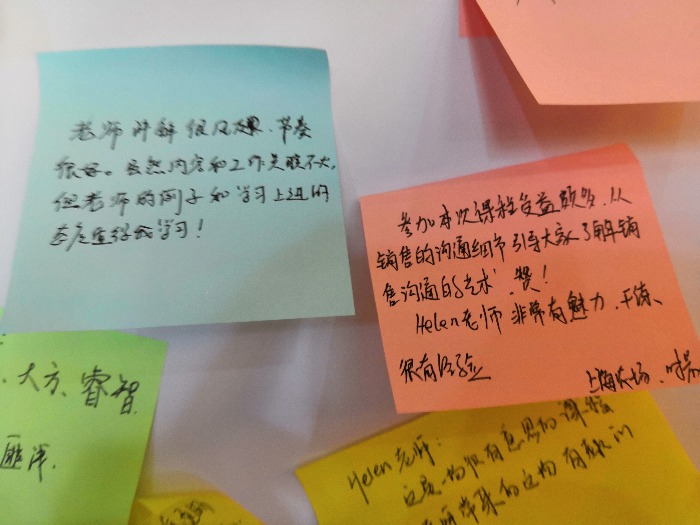 老师讲解很风趣、节奏
很好。虽然内容和工作关联不大,
但老师的例子和学习上进的
态度值得我学习!
参加本次课程受益颇多,从
销售的沟通细节引导大家了解销
售沟通的艺术,赞!
Helen老师 非常有魅力、干练、
很有经验
上海农场
、大方、睿智
匪浅.
Helen老师:
这是一场很有意思的课程